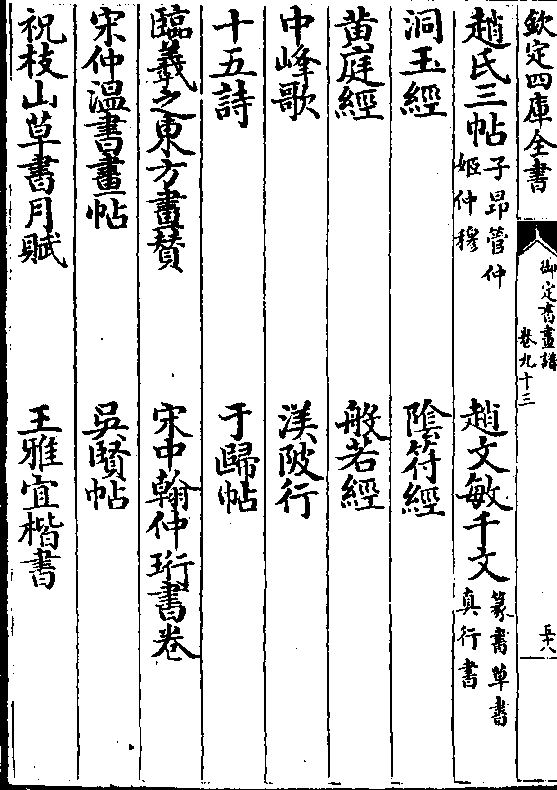 欽定四庫全書
御定書畫譜
卷九十三
五十八
趙氏三帖 子昂 管仲姬 仲穆 趙文敏千文 篆書 草書 真 行書
洞玉經 陰符經
黄庭經 般若經
中峰歌 渼陂行
十五詩 于歸帖
臨羲之東方畫贊 宋中翰仲珩書卷
宋仲温書畫帖 吳賢帖
祝枝山草書月賦 王雅宜楷書